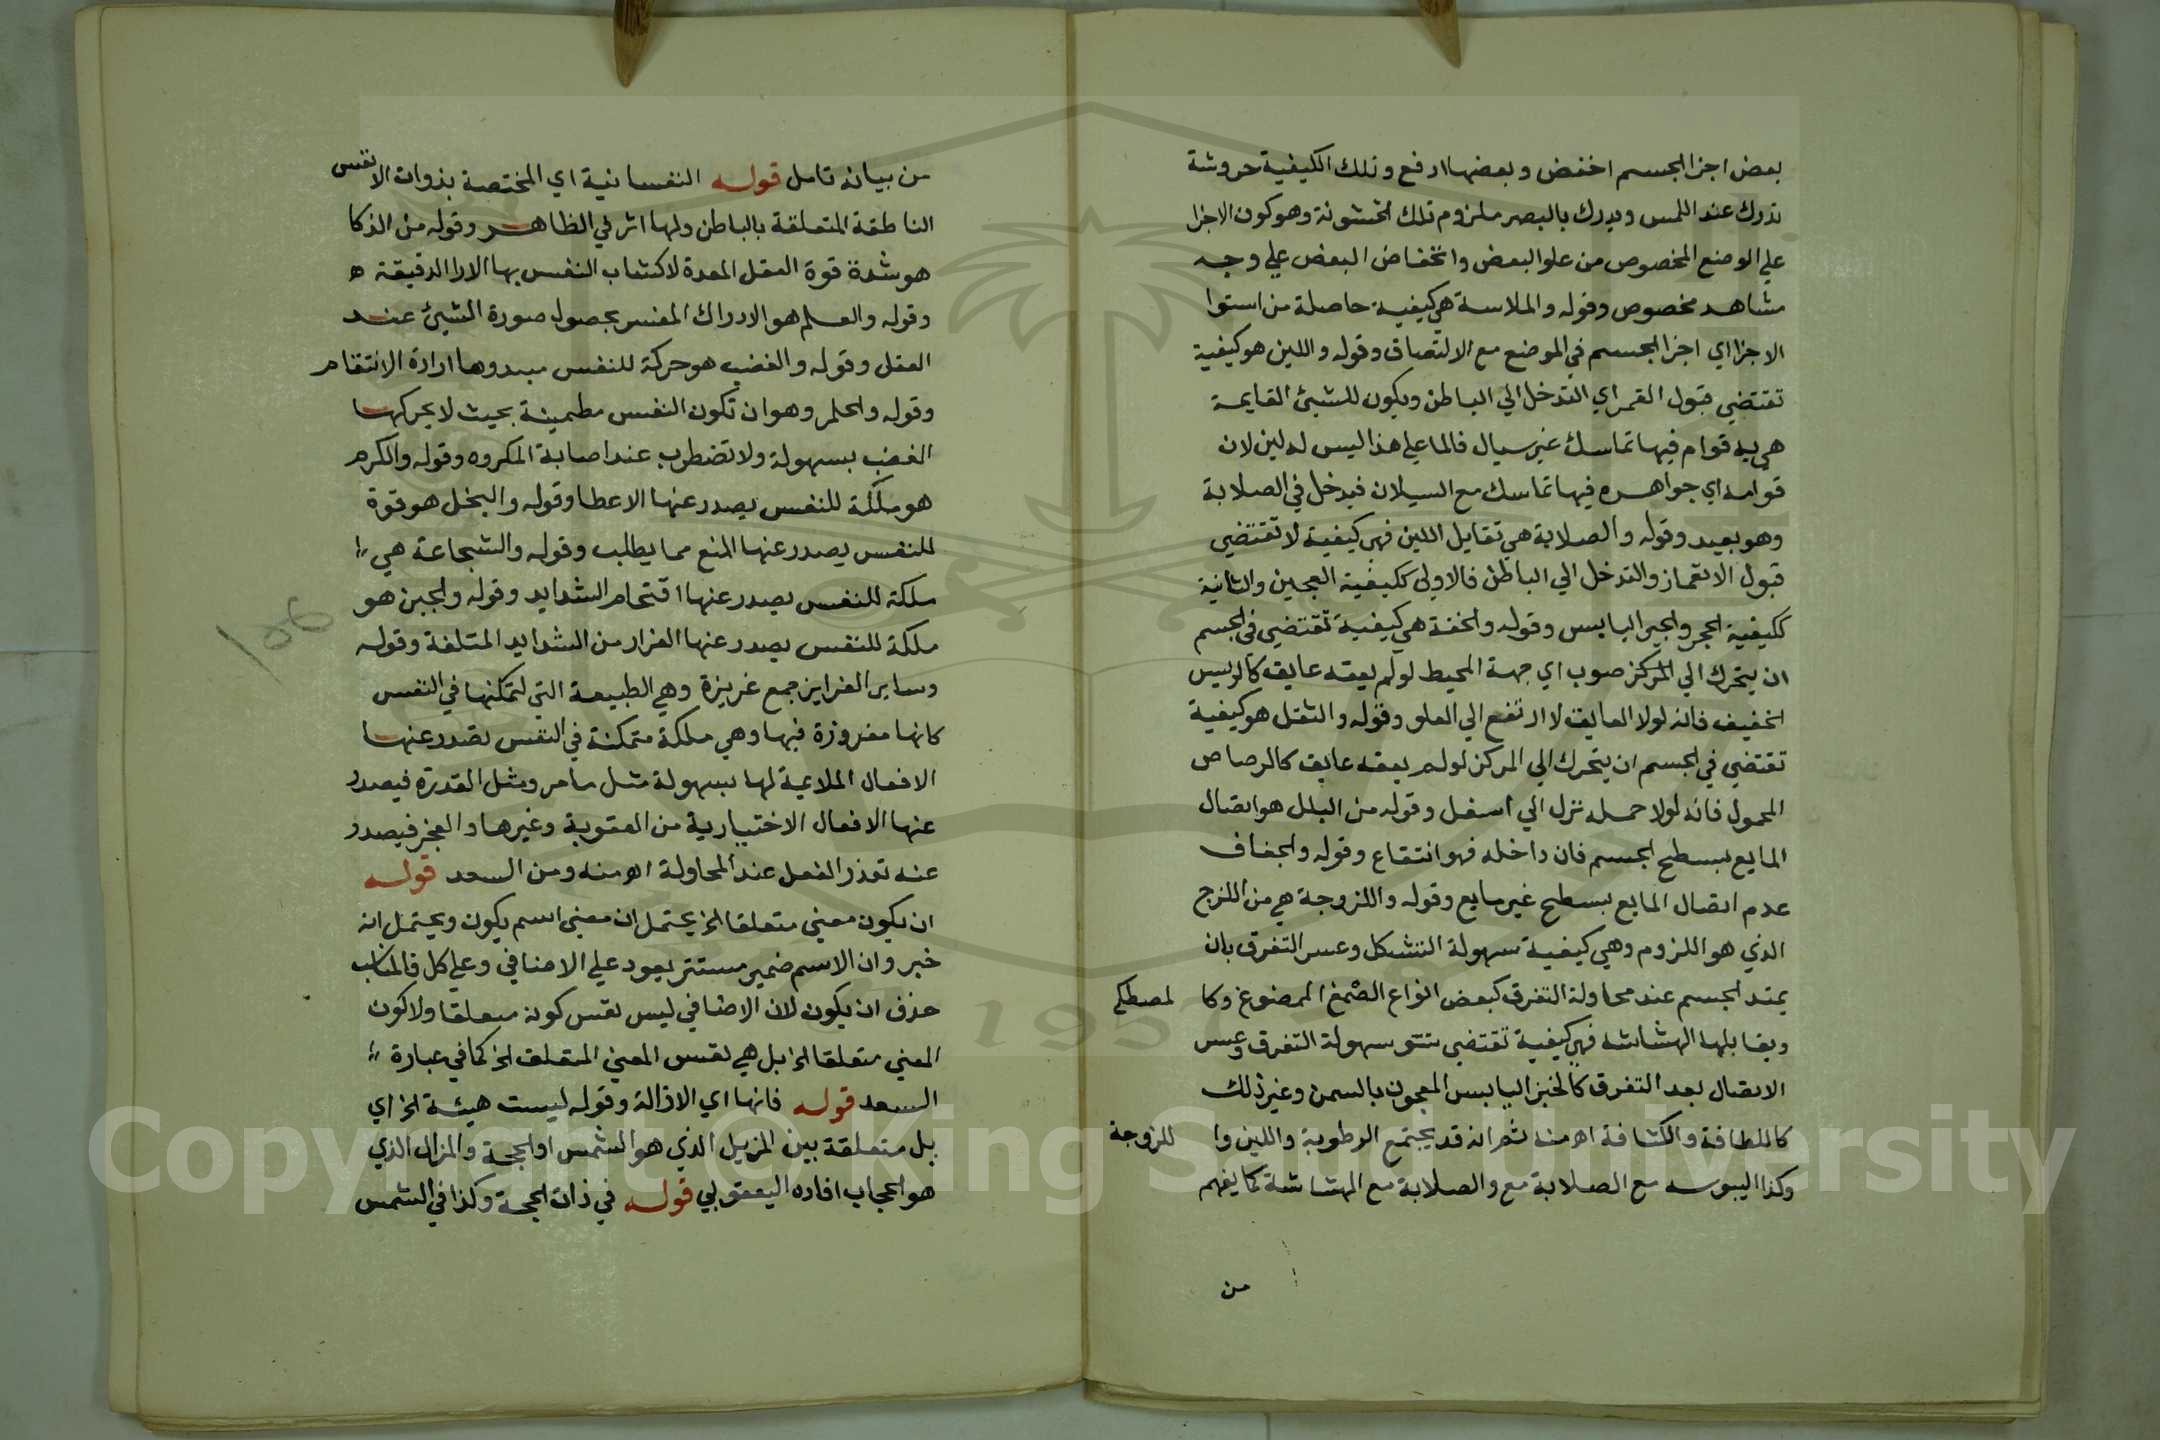 بعض اجزا الجسم اخفض وبعضها ارفع وتلك الكيفية حروشة
تدرك عند اللمس ويدرك بالبصر ملزوم تلك الخشونة وهو كون الاجزا
علي الوضع المخصوص من علو البعض وانخفاض البعض علي وجه
مشاهد مخصوص وقوله والملاسة هي كيفية حاصلة من استوا
الاجزا اي اجزا الجسم في الموضع مع الالتصاق وقوله واللين هو كيفية
تقتضي قبول الغمر اي التدخل الي الباطن ويكون للشئ القايمة
هي به قوام فيها تماسك غير سيال فالما علي هذا ليس له لين لان
قوامه اي جواهره فيها تماسك مع السيلان فيدخل في الصلابة
وهو بعيد وقوله والصلابة هي تقابل اللين فهي كيفية لا تقتضي
قبول الانغماز والتدخل الي الباطن فالاولي ككيفية العجين والثانية
ككيفية الحجر والجير اليابس وقوله والخفة هي كيفية تقتضي في الجسم
ان يتحرك الي المركز صوب اي جهة المحيط لو لم يعقه عايق كالريس
الخفيف فانه لولا العايق لا ارتفع الي العلو وقوله والثقل هو كيفية
تقتضي في الجسم ان يتحرك الي المركز لو لم يعقه عايق كالرصاص
المحمول فانه لولا حمله نزل الي اسفل وقوله من البلل هو اتصال
المايع بسطح الجسم فان داخله فهو انتقاع وقوله والجفاف
عدم اتصال المايع بسطح غير مايع وقوله واللزوجة هي من اللزج
الذي هو اللزوم وهي كيفية سهولة التشكل وعسر التفرق بان
يمتد الجسم عند محاولة التفرق كبعض انواع الصمغ الممضوغ وكا لمصطكي
ويقابلها الهشاشه فهي كيفية تقتضي سهولة التفرق وعسر
الاتصال بعد التفرق كالخبز اليابس المعجون بالسمن وغير ذلك
كاللطافة والكثافة اه منه ثم انه قد يجتمع الرطوبة واللين وا للزوجة
وكذا اليبوسه مع الصلابة مع والصلابة مع الهشاشة كما يفهم
من
من بيانه تامل قوله النفسانية اي المختصة بذوات الانفس
الناطقة المتعلقة بالباطن ولها اثر في الظاهر وقوله من الذكا
هو شدة قوة العقل المعدة لاكتساب النفس بها الارا الدقيقة ه
وقوله والعلم هو الادراك المفسر بحصول صورة الشئ عند
العقل وقوله والغضب هو حركة للنفس مبدوها ارادة الانتقام
وقوله والحلم وهو ان تكون النفس مطمينة بحيث لا يحركها
الغضب بسهولة ولا تضطرب عند اصابة المكروه وقوله والكرم
هو ملكة للنفس يصدر عنها الاعطا وقوله والبخل هو قوة
للنفس يصدر عنها المنع مما يطلب وقوله والشجاعة هي
ملكة للنفس يصدر عنها اقتحام الشدايد وقوله والجبن هو
ملكة للنفس يصدر عنها الفرار من الشدايد المتلفة وقوله
وساير الغرايز جمع غريزة وهي الطبيعة التي لتمكنها في النفس
كانها مغروزة فيها وهي ملكة متمكنة في النفس تصدر عنها
الافعال الملايمة لها بسهولة مثل ما مر ومثل القدرة فيصدر
عنها الافعال الاختيارية من العقوبة وغيرها والعجز فيصدر
عنه تعذر الفعل عند المحاولة اه منه ومن السعد قوله
ان يكون معني متعلقا الخ يحتمل ان معني اسم يكون ويحتمل انه
خبر وان الاسم ضمير مستتر يعود علي الاضافي وعلي كل فالمناسب
حذف ان يكون لان الاضافي ليس نفس كونه متعلقا ولا كون
المعني متعلقا الخ بل هي نفس المعني المتعلق الخ كما في عبارة
السعد قوله فانها اي الازالة وقوله ليست هيئة الخ اي
بل متعلقة بين المزيل الذي هو الشمس او الحجة والمزال الذي
هو الحجاب افاده اليعقوبي قوله في ذات الحجة وكذا في الشمس
Copyright © King Saud University
1957